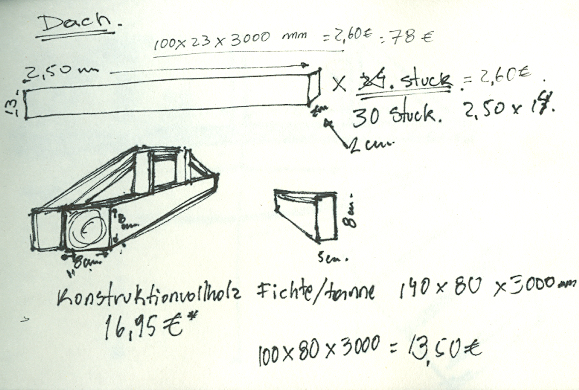 Dach.
100x23x3000 mm = 2,60€ = 78€
2,50m
x 24. stuck. = 2,60€.
13
30 stuck. 2,50 x
2cm.
8cm
8cm
8cm.
5cm.
Konstruktionvollholz Fichte/tanne 140 x 80 x 3000mm
16,95€*
100x80x3000 = 13,50€